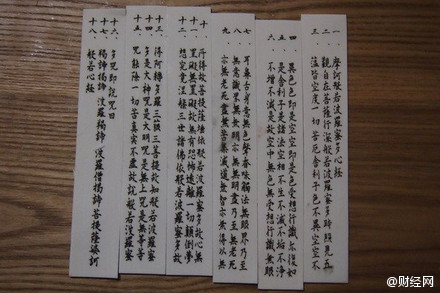 一、摩訶般若波羅蜜多心經
二、觀自在菩薩行深般若波羅蜜多時照見五
三、蘊皆空度一切苦厄舍利子色不異空空不
四、異色色即是空空即是色受想行識亦復如
五、是舍利子是諸法空相不生不滅不垢不淨
六、不增不減是故空中無色無受想行識無眼
七、耳鼻舌身意無色聲香味觸法無眼界乃至
八、無意識界無無明亦無無明盡乃至無老死
九、亦無老死盡無苦集滅道無智亦無得以無
十、所得故菩提薩埵依般若波羅蜜多故心無
十一、罣礙無罣礙故無有恐怖遠離一切顛倒夢
十二、想究竟涅槃三世諸佛依般若波羅蜜多故
十三、得阿耨多羅三藐三菩提故知般若波羅蜜
十四、多是大神咒是大明咒是無上咒是無等等
十五、咒能除一切苦真實不虛故說般若波羅蜜
十六、多咒即說咒曰
十七、揭諦揭諦 波羅揭諦 波羅僧揭諦菩提薩婆訶
十八、般若心經
@财经网